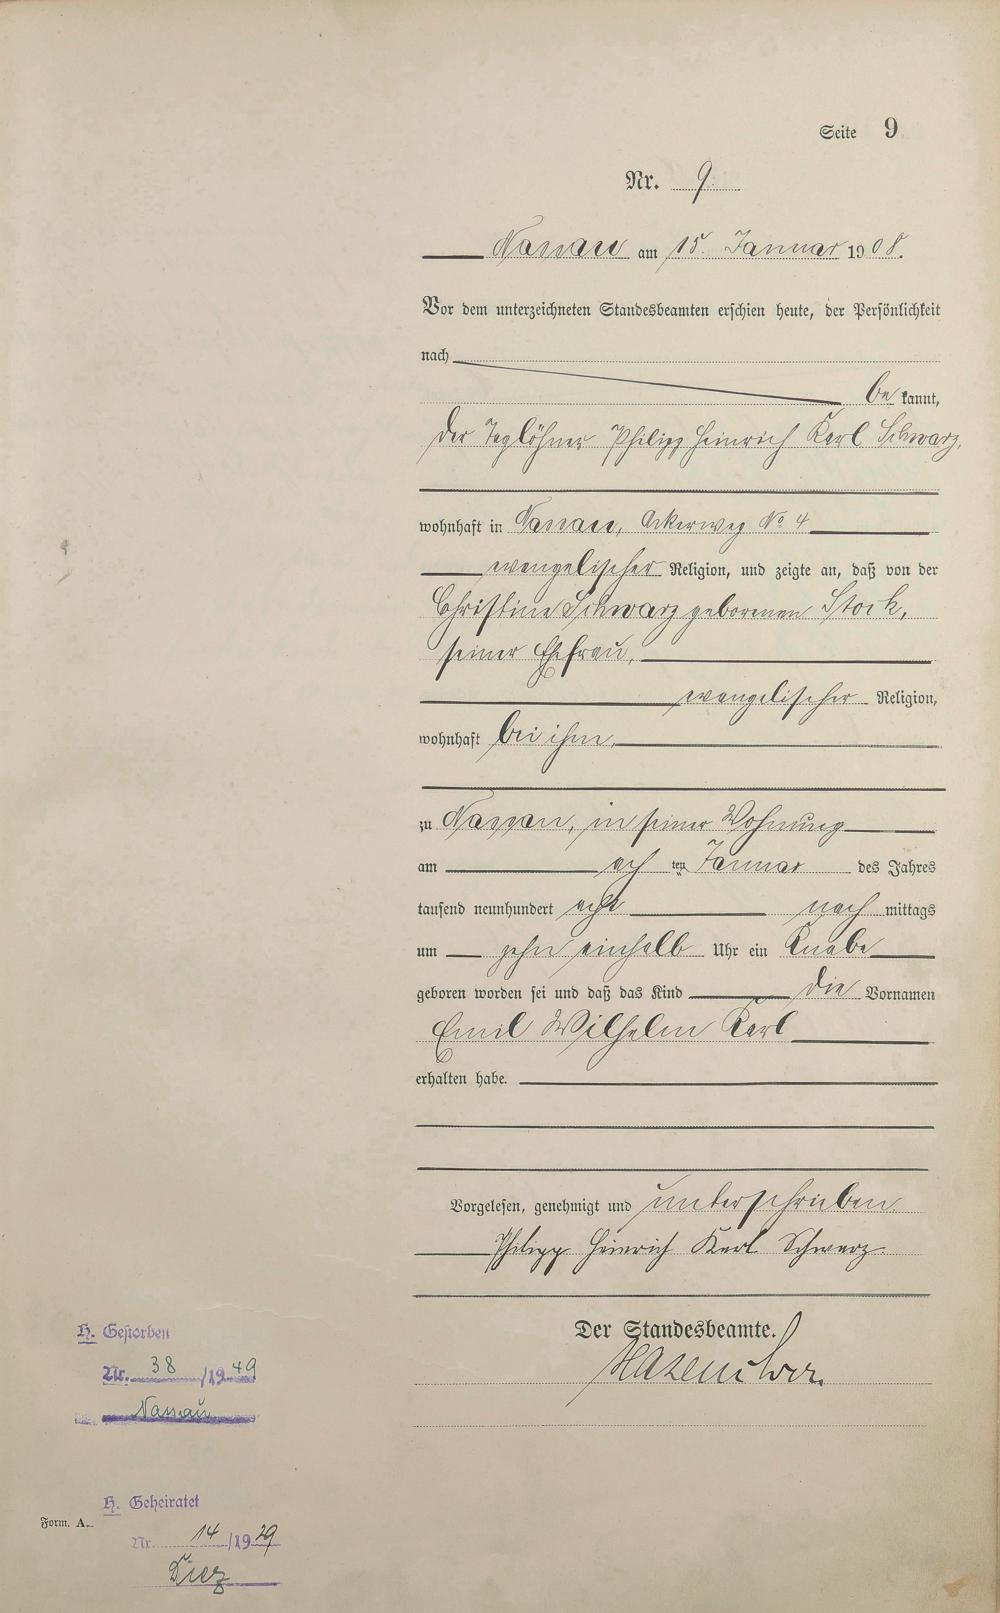 Seite 9
Nr. 9.
Nassau am 15. Januar 1908.
Vor dem unterzeichneten Standesbeamten erschien heute, der Persönlichkeit
nach
be kannt,
der Taglöhner Philipp Heinrich Karl Schwarz,
wohnhaft in Nassau, Ackerweg No 4
evangelischer Religion, und zeigte an, daß von der
Christine Schwarz geborenen Stock,
seiner Ehefrau,
evangelischer Religion,
wohnhaft bei ihm,
zu Nassau, in seiner Wohnung
am ten Januar des Jahres
tausend neunhundert acht nach mittags
um zehn einhalb Uhr ein Knabe
geboren worden sei und daß das Kind die Vornamen
Emil Wilhelm Karl
erhalten habe.
Vorgelesen, genehmigt und unterschrieben.
Philipp Heinrich Karl Schwarz.
Der Standesbeamte.
H. Gestorben
Nr. 38 /1949
Nassau
H. Geheiratet
Form. A.
Nr. 14 /1929
Diez